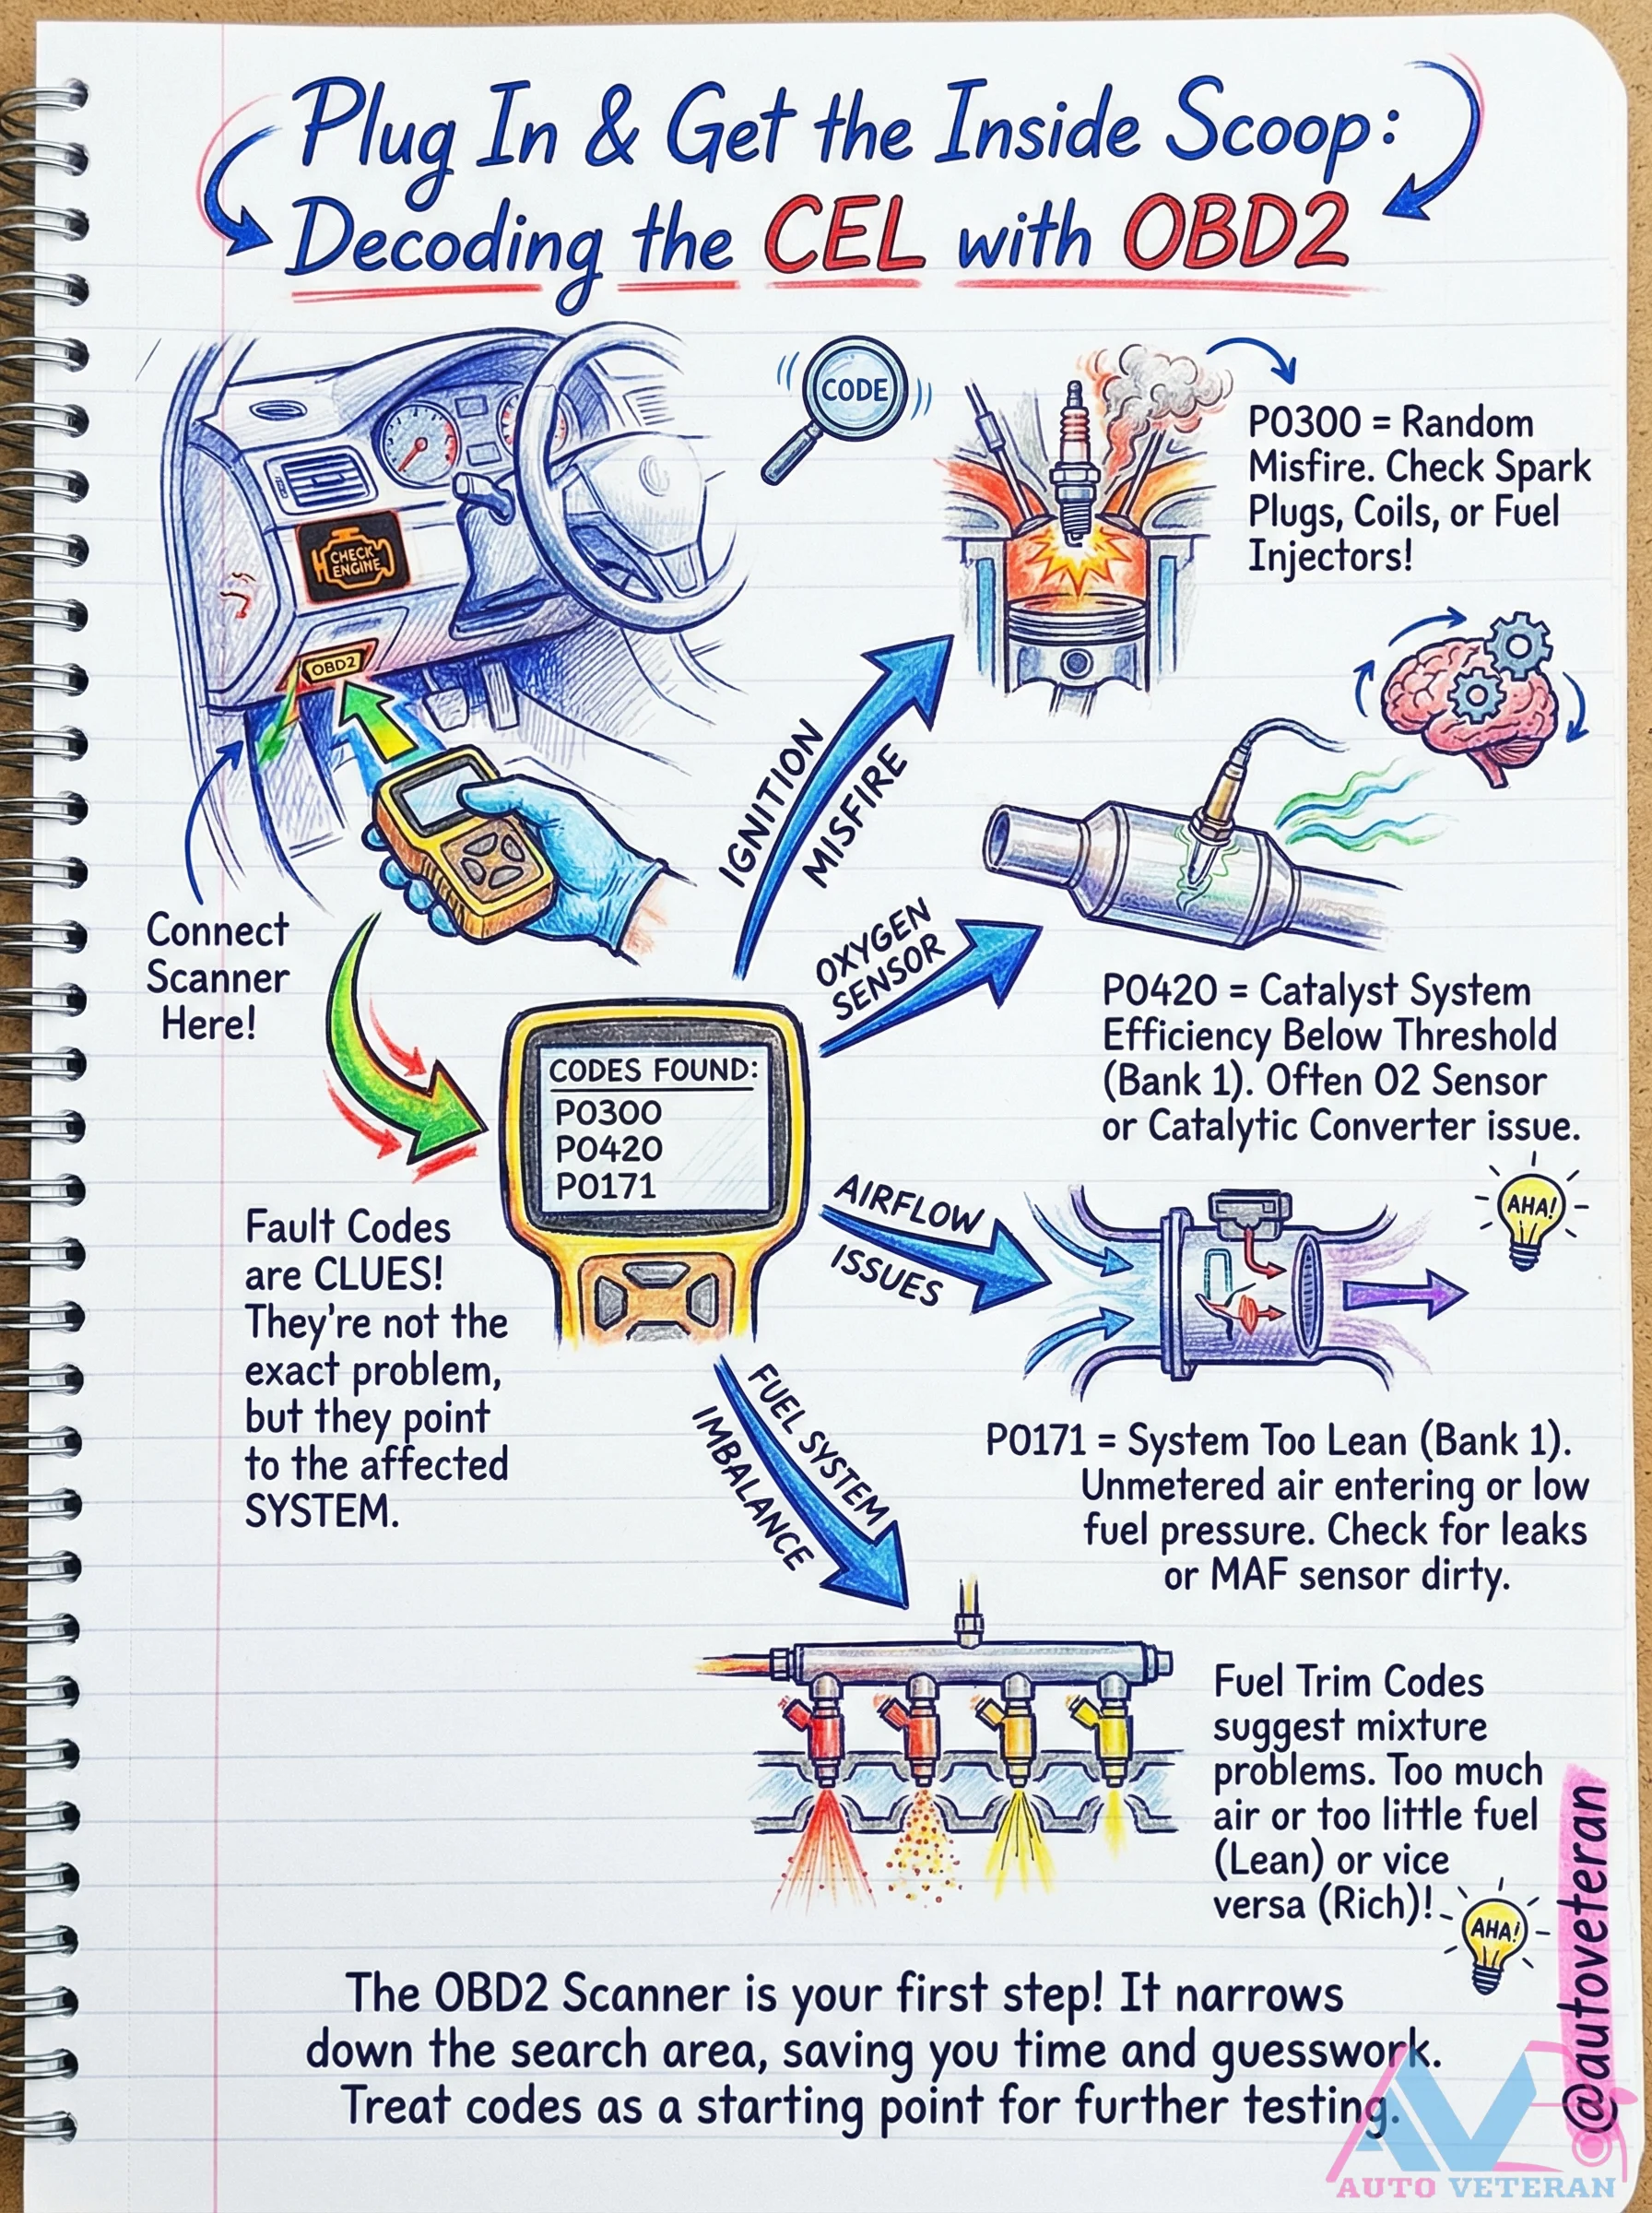 Plug In & Get the Inside Scoop:
Decoding the CEL with OBD2
CODE
P0300 = Random
Misfire. Check Spark
Plugs, Coils, or Fuel
Injectors!
CHECK
ENGINE
OBD2
Connect
Scanner
Here!
IGNITION
MISFIRE
OXYGEN
SENSOR
P0420 = Catalyst System
Efficiency Below Threshold
(Bank 1). Often O2 Sensor
or Catalytic Converter issue.
CODES FOUND:
P0300
P0420
P0171
AIRFLOW
ISSUES
AHA!
Fault Codes
are CLUES!
They're not the
exact problem,
but they point
to the affected
SYSTEM.
P0171 = System Too Lean (Bank 1).
Unmetered air entering or low
fuel pressure. Check for leaks
or MAF sensor dirty.
FUEL SYSTEM
IMBALANCE
Fuel Trim Codes
suggest mixture
problems. Too much
air or too little fuel
(Lean) or vice
versa (Rich)!
AHA!
The OBD2 Scanner is your first step! It narrows
down the search area, saving you time and guesswork.
Treat codes as a starting point for further testing.
@autoveteran
AV
AUTO VETERAN